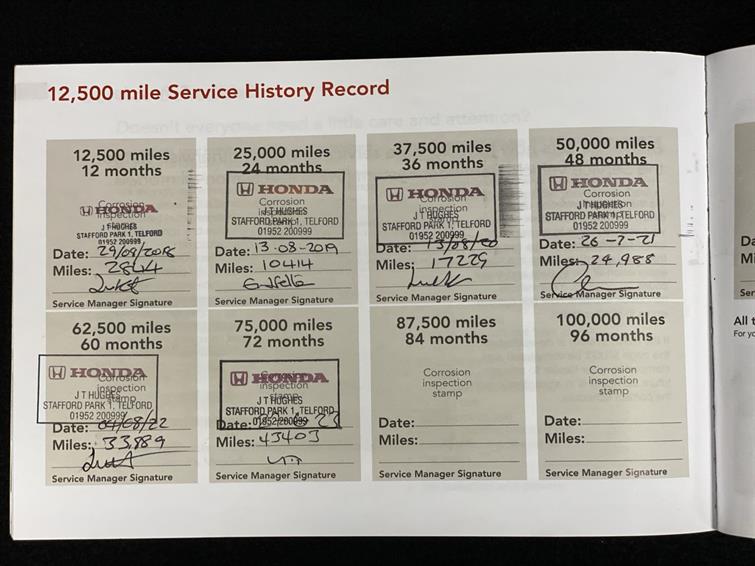 12,500 mile Service History Record
12,500 miles
12 months
HONDA
Corrosion
inspection
stamp
J T HUGHES
STAFFORD PARK 1, TELFORD
01952 200999
Date: 29/08/2018
Miles: 2844
Service Manager Signature
25,000 miles
24 months
HONDA
Corrosion
J T HUGHES
STAFFORD PARK 1, TELFORD
01952 200999
Date: 13-08-2019
Miles: 10414
Service Manager Signature
37,500 miles
36 months
HONDA
Corrosion
inspection
J T HUGHES
STAFFORD PARK 1, TELFORD
01952 200999
Date: 13/08/20
Miles: 17229
Service Manager Signature
50,000 miles
48 months
HONDA
Corrosion
inspection
J T HUGHES
STAFFORD PARK 1, TELFORD
01952 200999
Date: 26-7-21
Miles: 24,988
Service Manager Signature
62,500 miles
60 months
HONDA
Corrosion
inspection
stamp
J T HUGHES
STAFFORD PARK 1, TELFORD
01952 200999
Date: 04/08/22
Miles: 33,889
Service Manager Signature
75,000 miles
72 months
HONDA
Corrosion
inspection
stamp
J T HUGHES
STAFFORD PARK 1, TELFORD
01952 200999
Date: 23
Miles: 43403
Service Manager Signature
87,500 miles
84 months
Corrosion
inspection
stamp
Date:
Miles:
Service Manager Signature
100,000 miles
96 months
Corrosion
inspection
stamp
Date:
Miles:
Service Manager Signature
All t
For yo